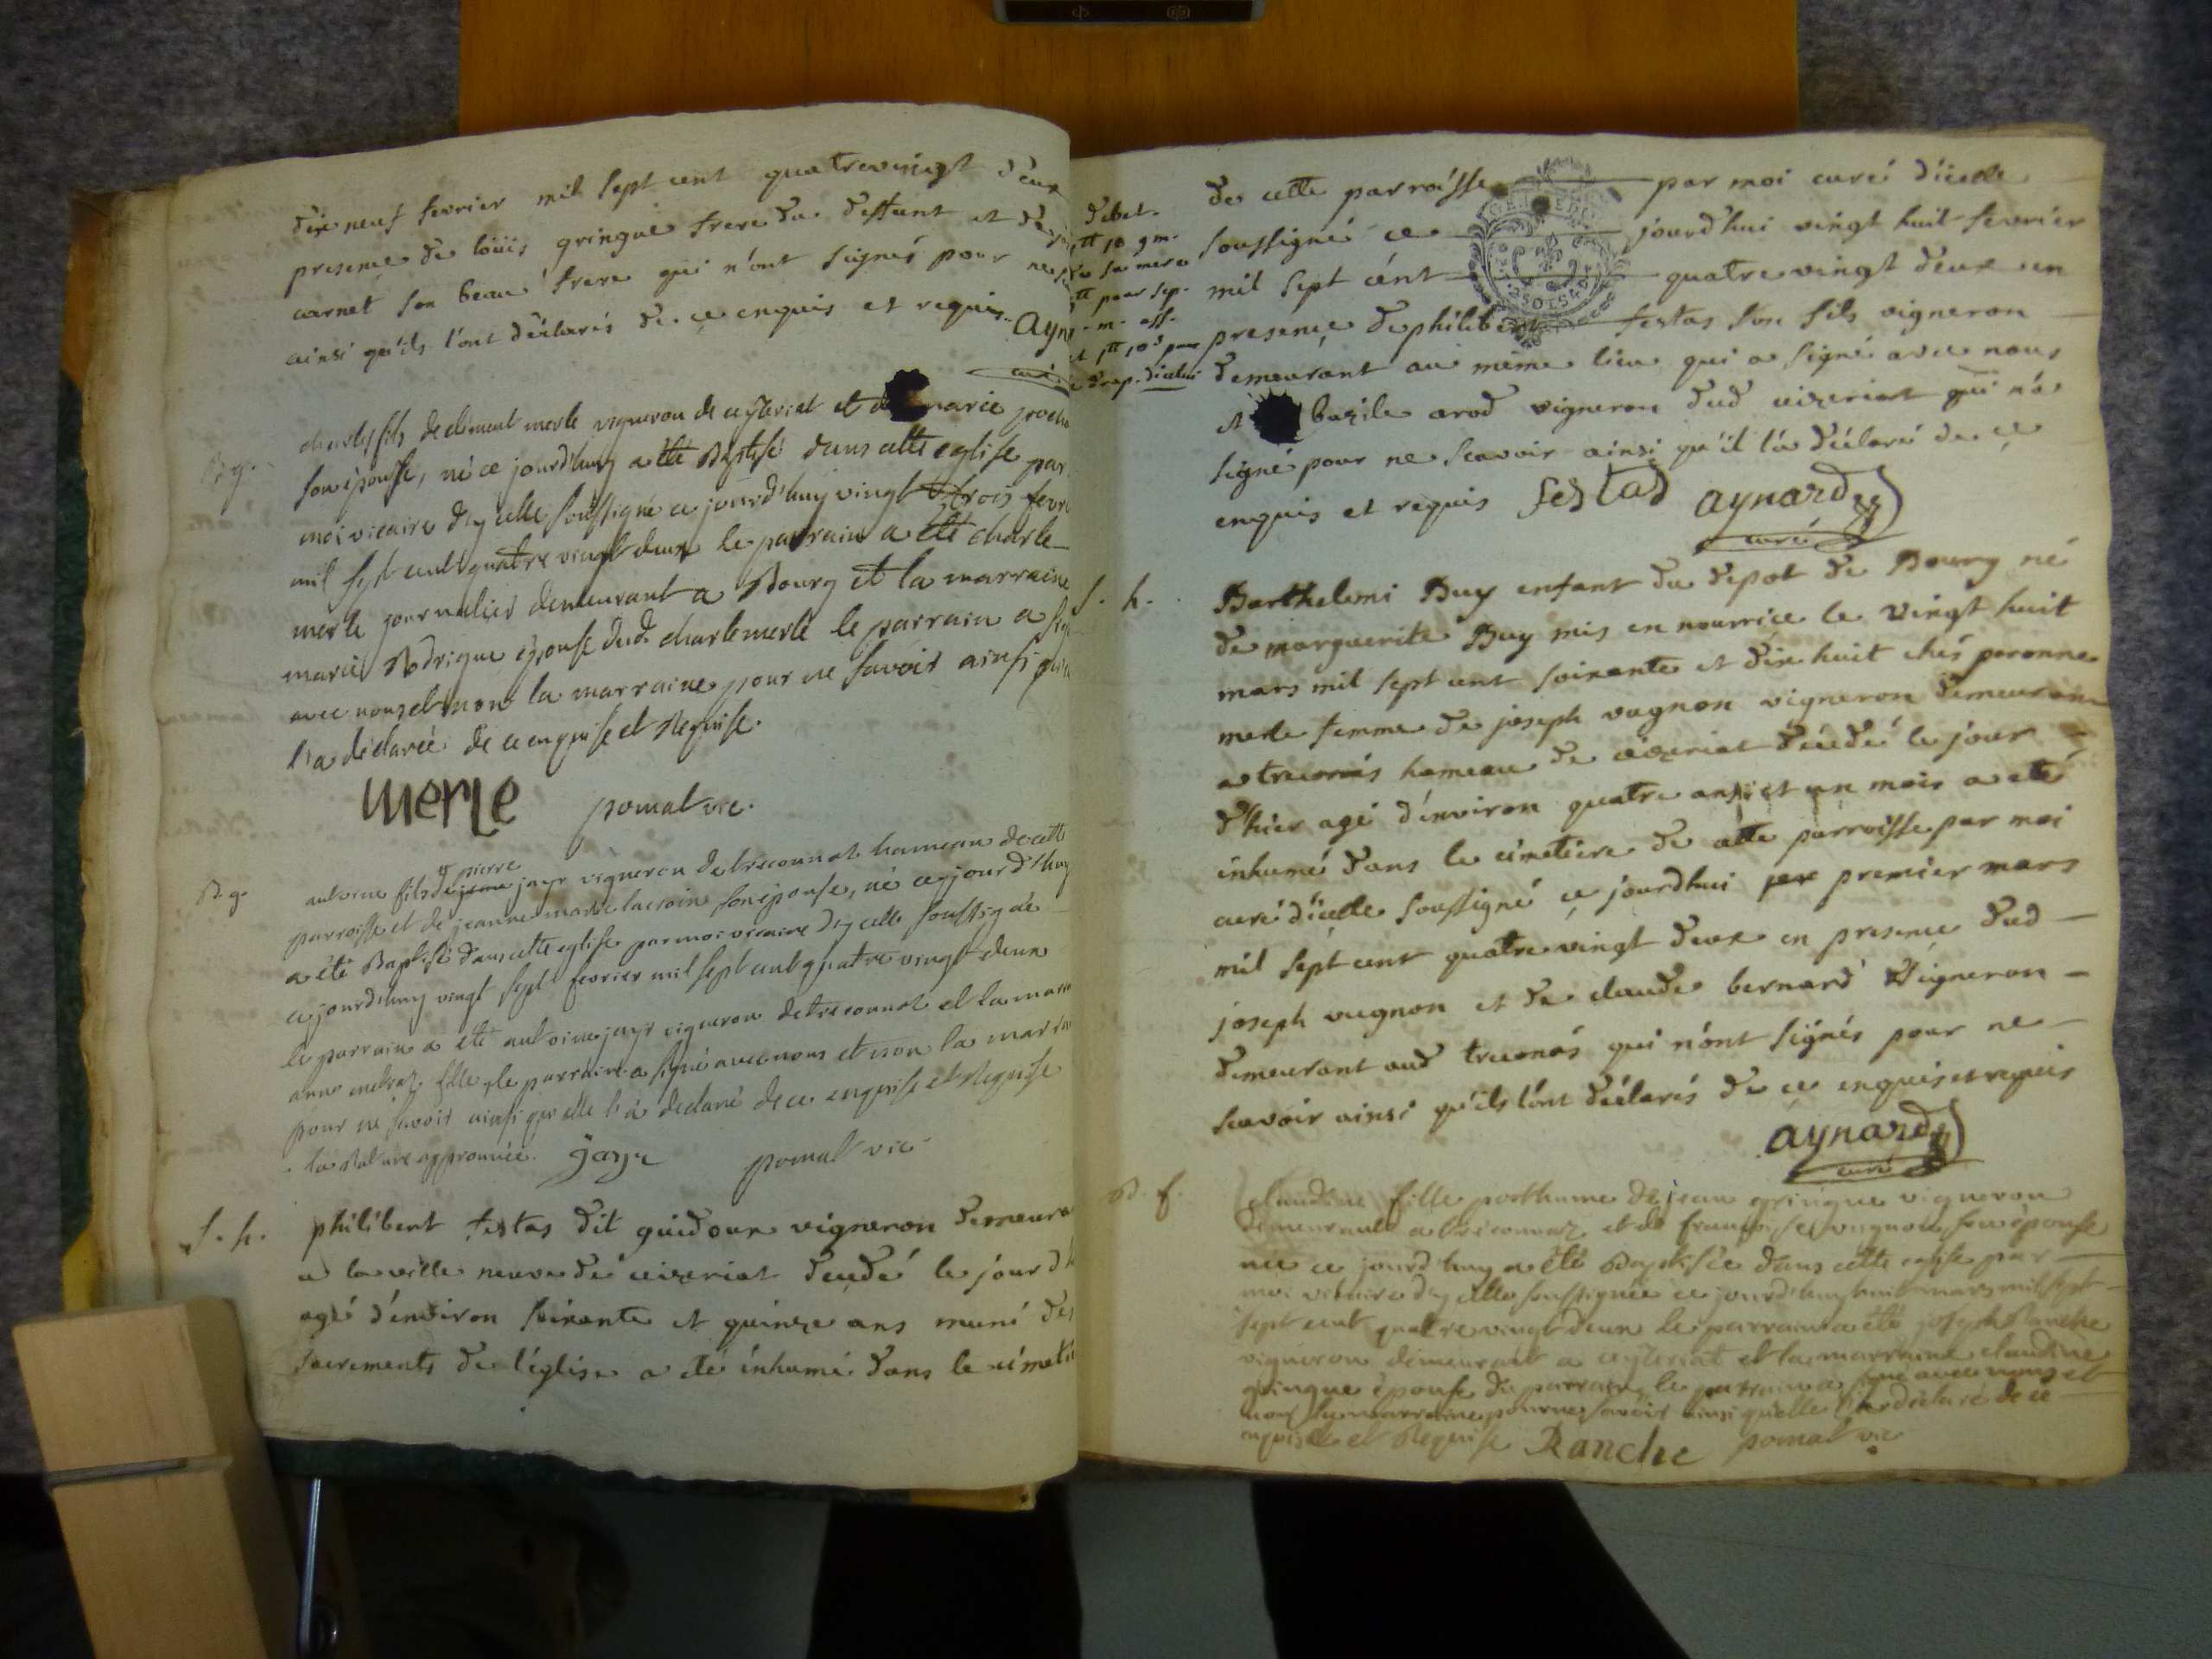 dixneuf fevrier mil sept cent quatrevingt deux
presence de loüis gringue frere du deffunt et de
carnet son beau frere qui n'ont signés pour ne
ainsi qu'ils l'ont déclarés de ce enquis et requis. Ayn
curé
B. g.
charles fils de clement merle vigneron de ceyzeriat et de marie
son épouse, né ce jourd'huy a été Baptisé dans cette eglise par
moi vicaire d'ycelle soussigné ce jourd'huy vingt trois fevri
mil sept cent quatre vingt deux le parrain a été charle
merle journalier demeurant a Bourg et la marraine
marie Rodrigue épouse dud. charle merle le parrain a
avec nous et non la marraine pour ne savoir ainsi
l'a déclarée de ce enquise et Requise.
merle pomat vic.
B. g.
pierre
antoine fils de jayr vigneron de treconnat hameau de cette
parroisse et de jeanne marie lacroix son épouse, né ce jourd'huy
a été Baptisé dans cette eglise par moi vicaire d'ycelle soussigné
ce jourd'huy vingt sept fevrier mil sept cent quatre vingt deux
le parrain a été antoine jayr vigneron de treconnat et la
anne fille, le parrain a signé avec nous et non la
pour ne savoir ainsi qu'elle l'a declaré de ce enquise et Requise
la Rature approuvée. Jayr pomat vic
S. h.
philibert festas dit guidoux vigneron demeura
a la ville neuve de ceizeriat decedé le jour d
agé d'environ soixante et quinze ans muni des
sacrements de l'église a été inhumé dans le cimeti
debet.
sa mere
pour sep.
drap. dicelui
de cette parroisse par moi curé d'icelle
soussigné ce jourd'hui vingt huit fevrier
mil sept cent quatre vingt deux en
presence de philibert festas son fils vigneron
demeurant au même lieu qui a signé avec nous
et bazile arod vigneron dud ceizeriat qui n'a
signé pour ne scavoir ainsi qu'il l'a déclaré de ce
enquis et requis festas aynard
curé
S. h.
Barthelemi Buy enfant du depot de Bourg né
de marguerite Buy mis en nourrice le vingt huit
mars mil sept cent soixante et dix huit chés peronne
merle femme de joseph vugnon vigneron demeurant
a treconas hameau de ceizeriat décédé le jour
d'hier agé d'environ quatre ans et un mois a été
inhumé dans le cimetiere de cette parroisse par moi
curé d'icelle soussigné ce jourdhui premier mars
mil sept cent quatre vingt deux en presence dud
joseph vugnon et de claude bernard vigneron
demeurant aud treconas qui n'ont signés pour ne
scavoir ainsi qu'ils l'ont déclarés de ce enquis et requis
aynard
curé
B. f.
claudine fille posthume de jean gringue vigneron
demeurant a treconnaz et de françoise vugnon son épouse
née ce jourd'huy a été Baptisée dans cette eglise par
moi vicaire d'ycelle soussignée ce jourd'huy huit mars mil sept
sept cent quatre vingt deux le parrain a été joseph Ranche
vigneron demeurant a ceyzeriat et la marraine claudine
gringue épouse du parrain, le parrain a signé avec nous et
non la marraine pour ne savoir ainsi qu'elle l'a déclaré de ce
enquise et Requise Ranche pomat vic